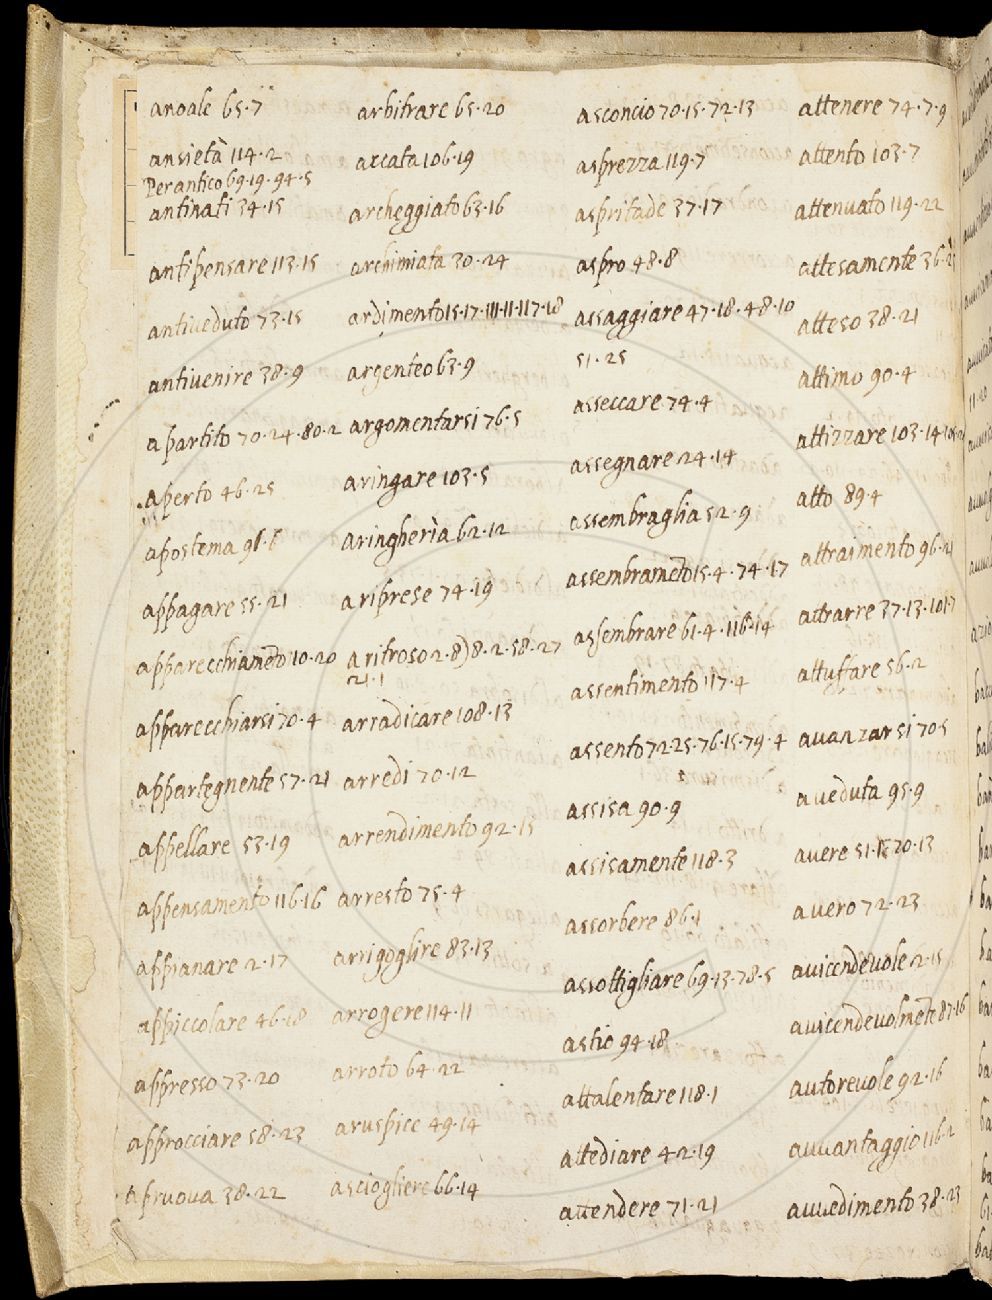 anoale 65·7
ansietà 114·2
Per antico 69·19·94·5
antinati 34·15
antipensare 113·15
antiueduto 73·15
antiuenire 38·9
a partito 70·24·80·2
aperto 46·25
apostema
appagare 55·21
apparecchiamẽto 10·20
apparecchiarsi 70·4
appartegnente 57·21
appellare 53·19
appensamento 116·16
appianare 2·17
appiccolare 46·18
appresso 73·20
approcciare 58·23
apruoua 38·22
arbitrare 65·20
arcata 106·19
archeggiato 63·16
archimiata 30·24
ardimento 15·17·111·11·117·18
argenteo 63·9
argomentarsi 76·5
aringare 103·5
aringheria 62·12
a riprese 74·19
a ritroso 2·8)8·2·58·27
21·1
arradicare 108·13
arredi 70·12
arrendimento 92·15
arresto 75·4
arrigoglire 83·13
arrogere 114·11
arroto 64·22
aruspice 49·14
asciogliere 66·14
asconcio 70·15·72·13
asprezza 119·7
aspritade 37·17
aspro 48·8
assaggiare 47·18·48·10
51·25
asseccare 74·4
assegnare 24·14
assembraglia 52·9
assembramẽto 15·4·74·17
assembrare 61·4·116·14
assentimento 117·4
assento 72·25·76·15·79·4
assisa 90·9
assisamente 118·3
assorbere 86·1
assottigliare 69·13·78·5
astio 94·18
attalentare 118·1
attediare 42·19
attendere 71·21
attenere 74·7·9
attento 103·7
attenuato 119·22
attesamente
atteso 38·21
attimo 90·4
attizzare 103·14
atto 89·4
attraimento 96·21
attrarre 37·13·101·7
attuffare 56·2
auanzarsi 70·5
aueduta 95·9
auere
auero 72·23
auicendeuole 2·15
auicendeuolmẽte 87·16
autoreuole 92·16
auuantaggio 116·2
auuedimento 38·23